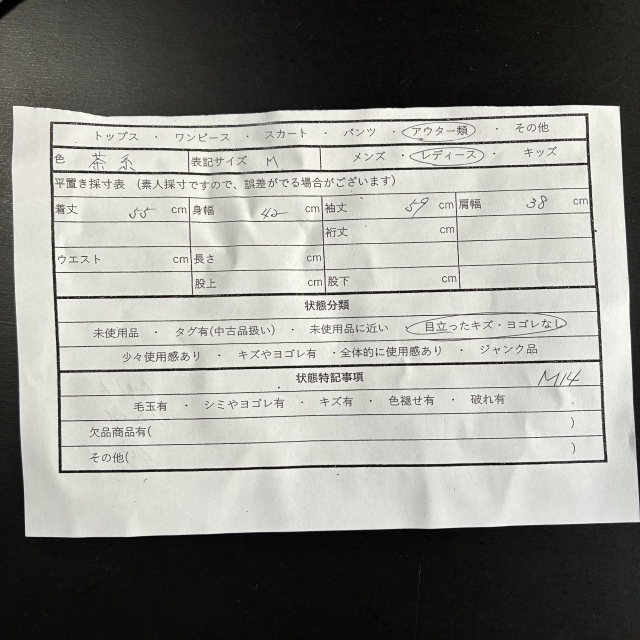 トップス ・ ワンピース ・ スカート ・ パンツ ・ アウター類 ・ その他
色 茶系 表記サイズ M メンズ ・ レディース ・ キッズ
平置き採寸表 (素人採寸ですので、誤差がでる場合がございます)
着丈 55 cm 身幅 42 cm 袖丈 59 cm 肩幅 38 cm
裄丈 cm
ウエスト cm 長さ cm
股上 cm 股下 cm
状態分類
未使用品 ・ タグ有(中古品扱い) ・ 未使用品に近い ・ 目立ったキズ・ヨゴレなし
少々使用感あり ・ キズやヨゴレ有 ・全体的に使用感あり ・ ジャンク品
状態特記事項 M14
毛玉有 ・ シミやヨゴレ有 ・ キズ有 ・ 色褪せ有 ・ 破れ有
欠品商品有( )
その他( )